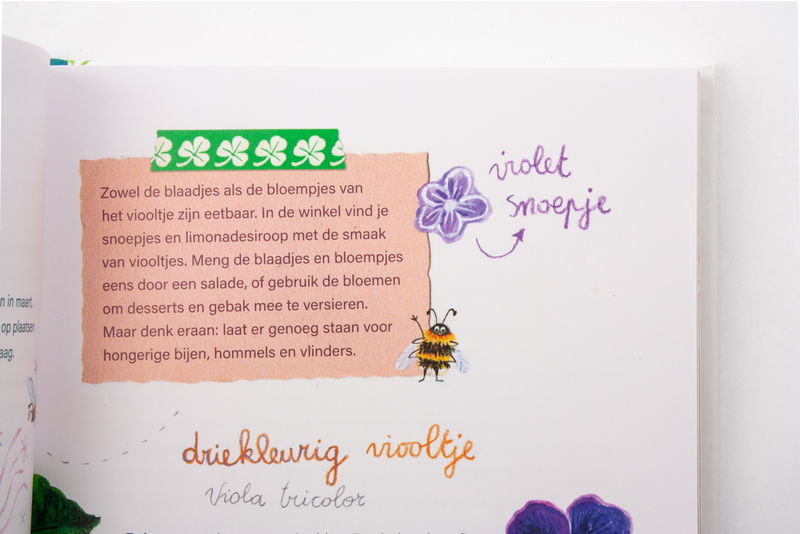 Zowel de blaadjes als de bloempjes van
het viooltje zijn eetbaar. In de winkel vind je
snoepjes en limonadesiroop met de smaak
van viooltjes. Meng de blaadjes en bloempjes
eens door een salade, of gebruik de bloemen
om desserts en gebak mee te versieren.
Maar denk eraan: laat er genoeg staan voor
hongerige bijen, hommels en vlinders.
violet
snoepje
n in maart,
op plaatsen
aag.
driekleurig viooltje
Viola tricolor